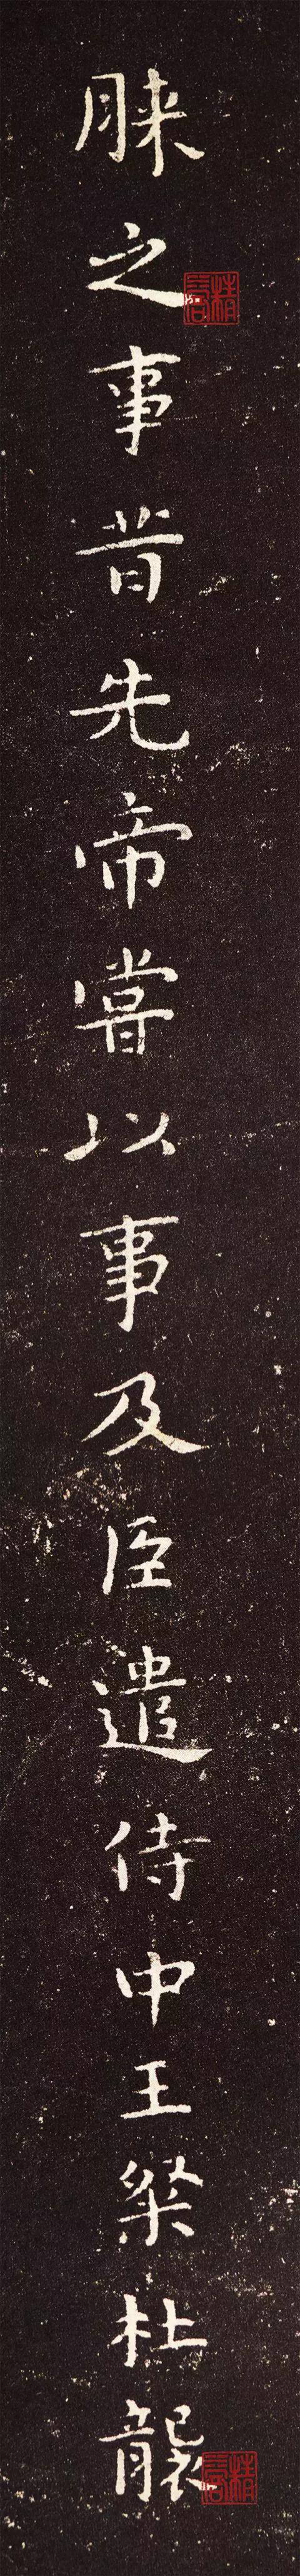 睞之事昔先帝嘗以事及臣遣侍中王粲杜襲